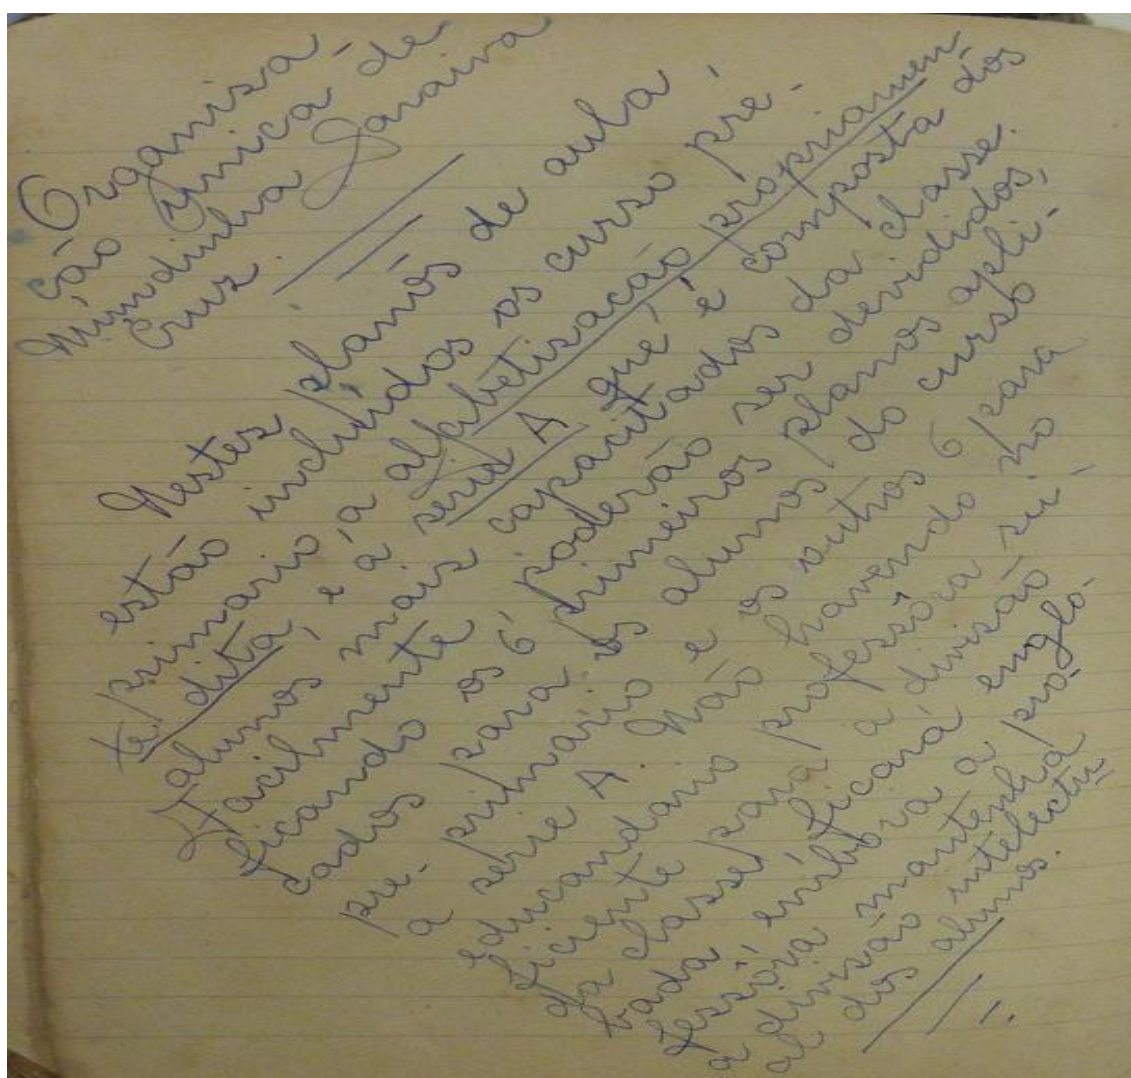 Organisa-
ção Única de
Mundinha Saraiva
Cruz.
Nestes planos de aula
estão incluídos os curso pré-
primario, a alfabetisação propriamen
te dita, e a serie A que é composta dos
alunos mais capacitados da classe.
Facilmente poderão ser devididos,
ficando os 6 primeiros planos apli-
cados para os alunos do curso
pre-primario e os outros 6 para
a serie A. Não havendo no
educandario professôra su-
ficiente para a divisão
da classe, ficará englo-
bada, embora a pro-
fessôra mantenha
a divisão intelectu
al dos alunos.